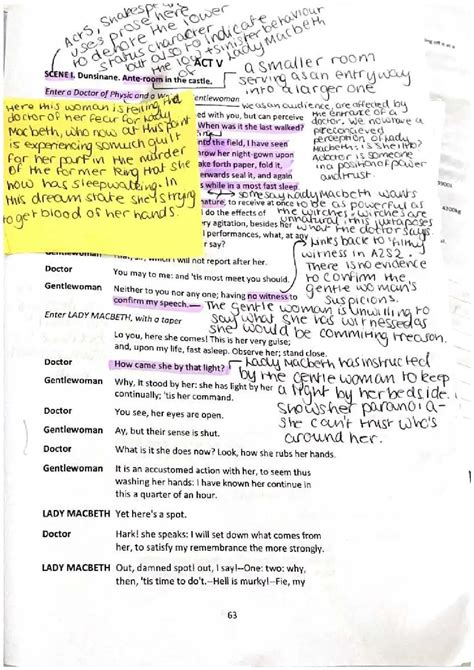 Act 5, Shakespeare
uses prose here
to denote the lower
status character
but also to indicate
the odd + sinister behaviour
of Lady Macbeth
ACT V
SCENE I. Dunsinane. Ante-room in the castle.
a smaller room
serving as an entryway
into a larger one
Enter a Doctor of Physic and a
Gentlewoman
Here this woman is telling the
doctor of her fear for Lady
Macbeth, who now at this point
is experiencing so much guilt
for her part in the murder
of the former King that she
now has sleepwalking. In
this dream state she's trying
to get blood of her hands.
we as an audience, are affected by
the entrance of a
doctor. We now have a
preconceived
perception of Lady
Macbeth: is she ill?
A doctor is someone
in a position of power
and trust.
ed with you, but can perceive
When was it she last walked?
into the field, I have seen
row her night-gown upon
ake forth paper, fold it,
erwards seal it, and again
while in a most fast sleep.
nature, to receive at once
d do the effects of
ry agitation, besides her
l performances, what, at any
r say?
some say Lady Macbeth wants
to be as powerful as
the witches - witches are
unnatural, this juxtaposes
what the doctor says.
Links back to 'filthy
witness' in A2S2.
There is no evidence
to confirm the
gentle woman's
suspicions.
Gentlewoman That, sir, which I will not report after her.
Doctor You may to me: and 'tis most meet you should.
Gentlewoman Neither to you nor any one; having no witness to
confirm my speech.
The gentle woman is unwilling to
say what she has witnessed as
she would be commiting treason.
Enter LADY MACBETH, with a taper
Lo you, here she comes! This is her very guise;
and, upon my life, fast asleep. Observe her; stand close.
Doctor How came she by that light?
Lady Macbeth has instructed
by the gentle woman to keep
a light by her bedside.
Shows her paranoia -
she can't trust who's
around her.
Gentlewoman Why, it stood by her: she has light by her
continually; 'tis her command.
Doctor You see, her eyes are open.
Gentlewoman Ay, but their sense is shut.
Doctor What is it she does now? Look, how she rubs her hands.
Gentlewoman It is an accustomed action with her, to seem thus
washing her hands: I have known her continue in
this a quarter of an hour.
LADY MACBETH Yet here's a spot.
Doctor Hark! she speaks: I will set down what comes from
her, to satisfy my remembrance the more strongly.
LADY MACBETH Out, damned spot! out, I say!--One: two: why,
then, 'tis time to do't.--Hell is murky!--Fie, my
63